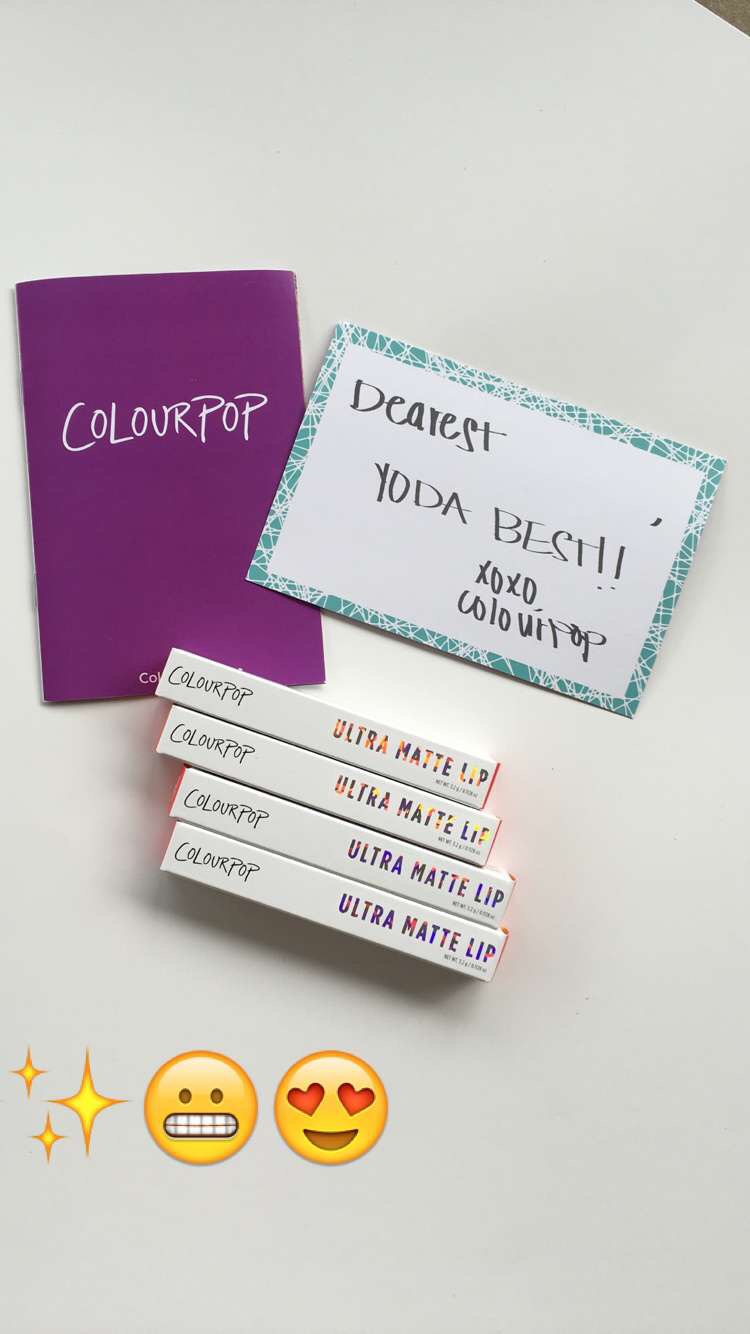 COLOURPOP
Dearest
YODA BEST!!
xoxo,
colourpop
COLOURPOP
ULTRA MATTE LIP
NET WT. 3.2 g / 0.108 oz
COLOURPOP
ULTRA MATTE LIP
NET WT. 3.2 g / 0.108 oz
COLOURPOP
ULTRA MATTE LIP
NET WT. 3.2 g / 0.108 oz
COLOURPOP
ULTRA MATTE LIP
NET WT. 3.2 g / 0.108 oz